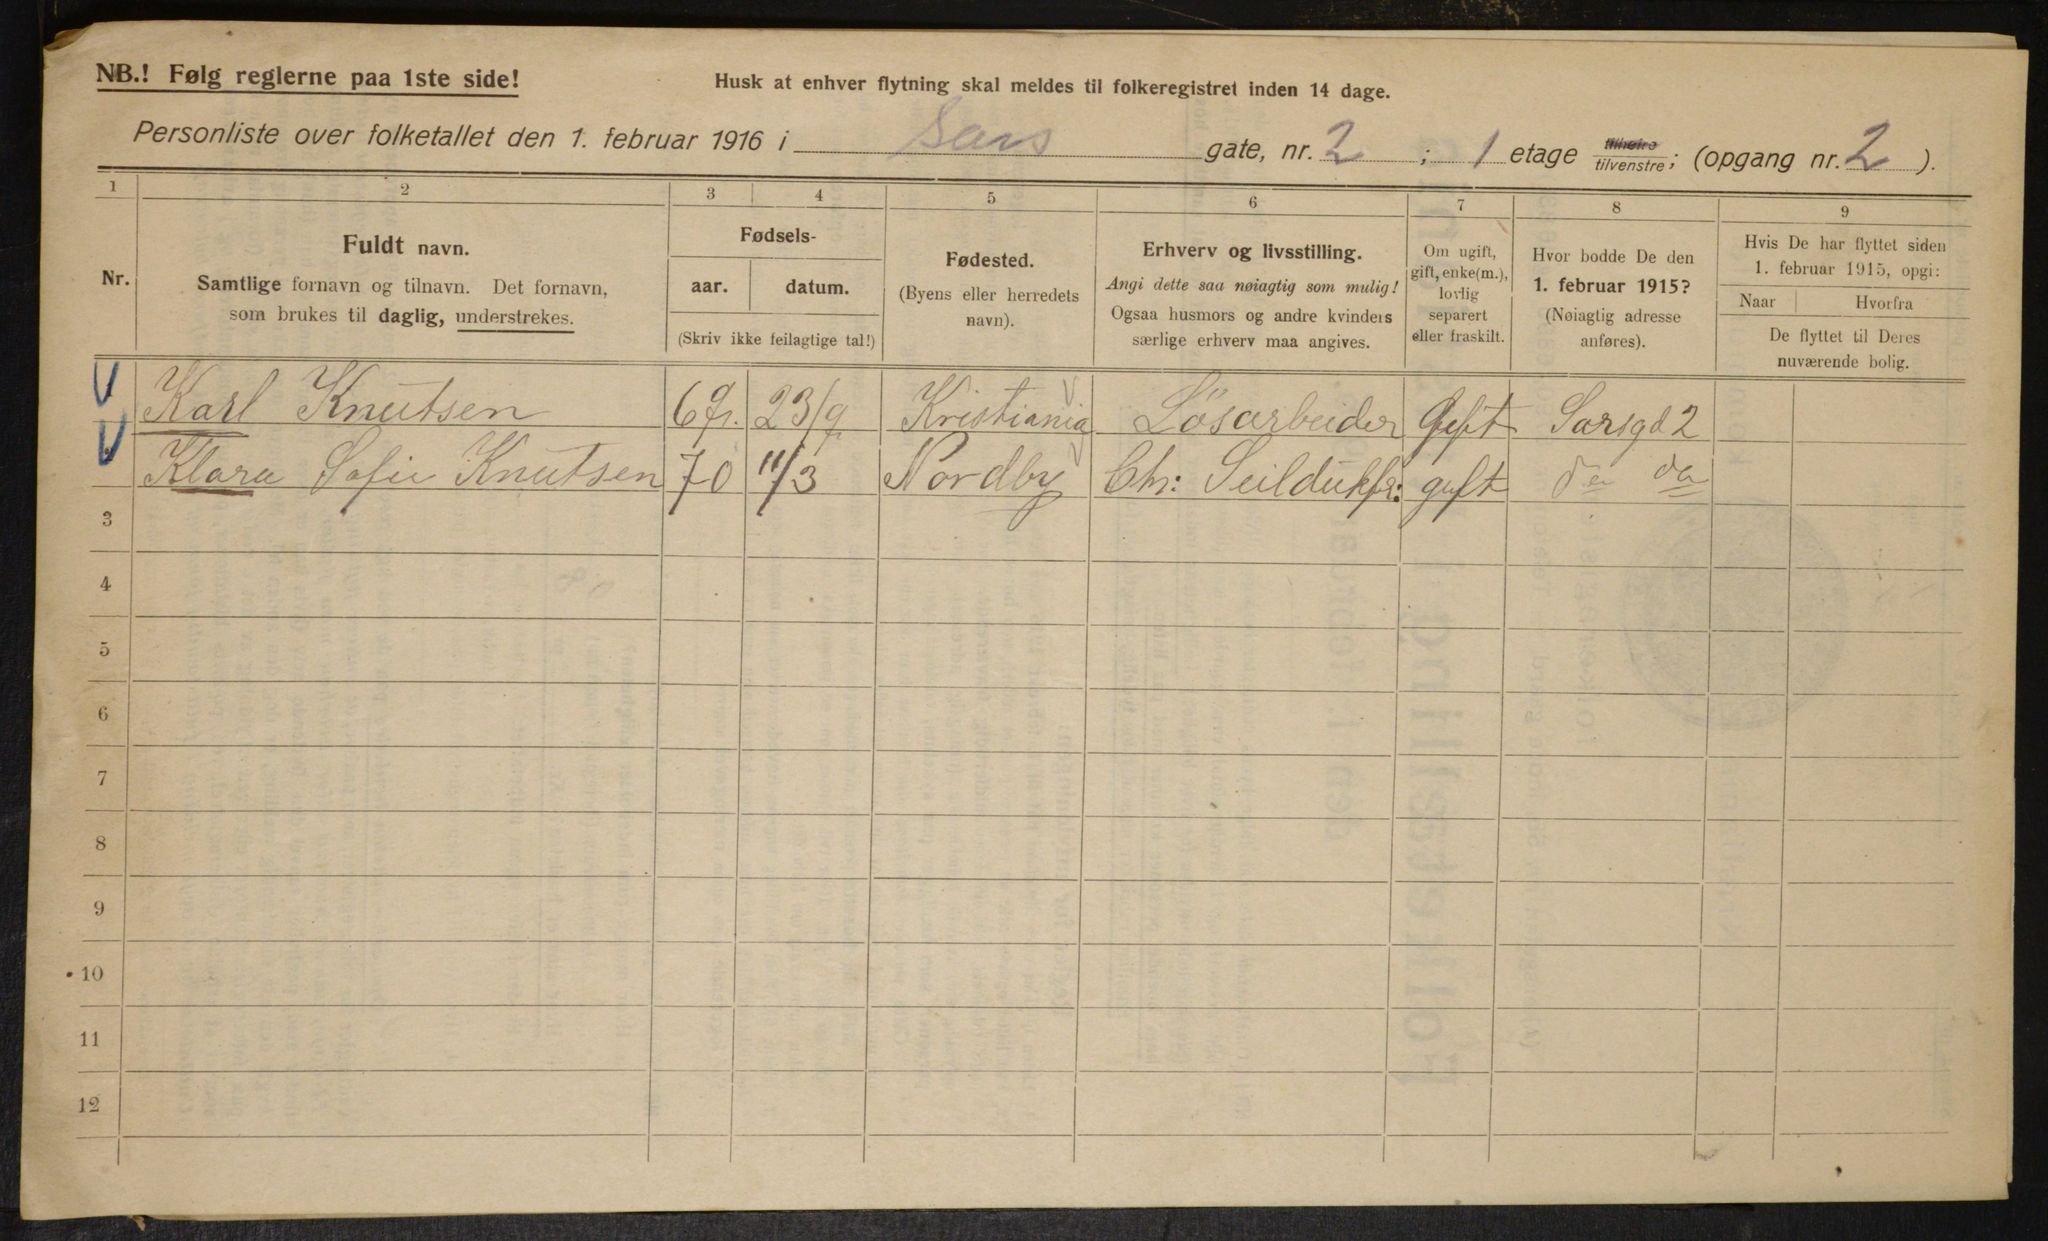 NB.! Følg reglerne paa 1ste side!
Husk at enhver flytning skal meldes til folkeregistret inden 14 dage.
Personliste over folketallet den 1. februar 1916 i Sars gate, nr. 2 ; 1 etage tilhøire tilvenstre; (opgang nr. 2 ).
1 2 3 4 5 6 7 8 9
Nr.
Fuldt navn.
Samtlige fornavn og tilnavn. Det fornavn,
som brukes til daglig, understrekes.
Fødsels-
aar. datum.
(Skriv ikke feilagtige tal!)
Fødested.
(Byens eller herredets
navn).
Erhverv og livsstilling.
Angi dette saa nøiagtig som mulig!
Ogsaa husmors og andre kvinders
særlige erhverv maa angives.
Om ugift,
gift, enke(m.),
lovlig
separert
eller fraskilt.
Hvor bodde De den
1. februar 1915?
(Nøiagtig adresse
anføres).
Hvis De har flyttet siden
1. februar 1915, opgi:
Naar Hvorfra
De flyttet til Deres
nuværende bolig.
Karl Knutsen 69. 23/9 Kristiania Løsarbeider Gift Sarsgd 2
Klara Sofie Knutsen 70 11/3 Nordby Chr: Seildukfr: gift do do
3
4
5
6
7
8
9
10
11
12